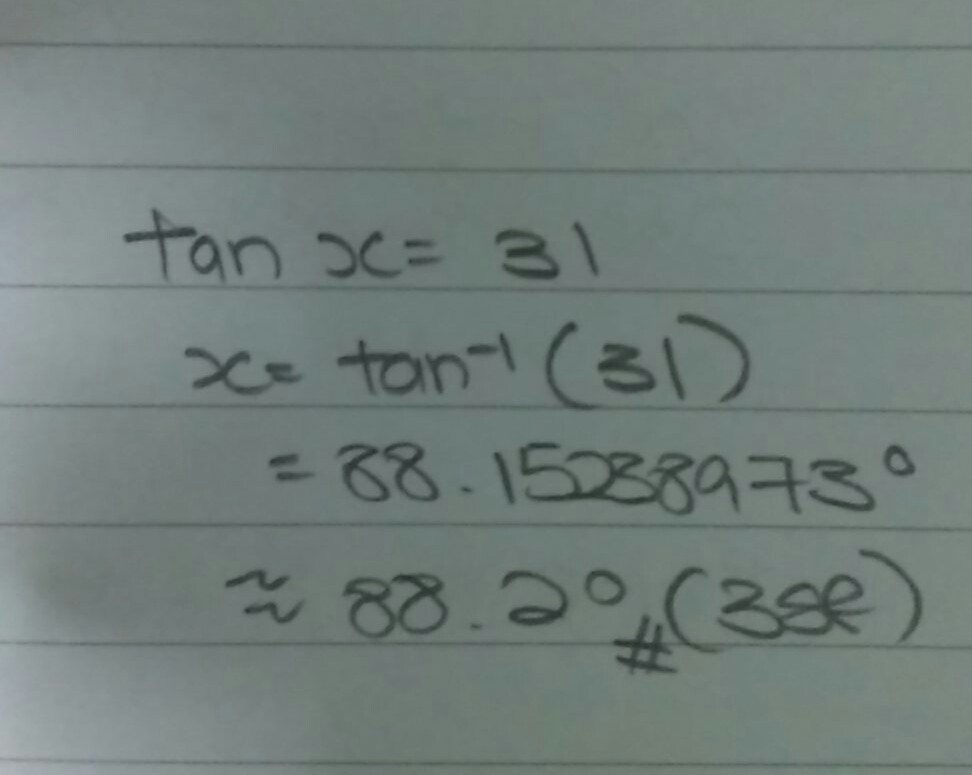 tan x = 31
x = tan⁻¹ (31)
= 88.15288973°
≈ 88.2° # (3sf)